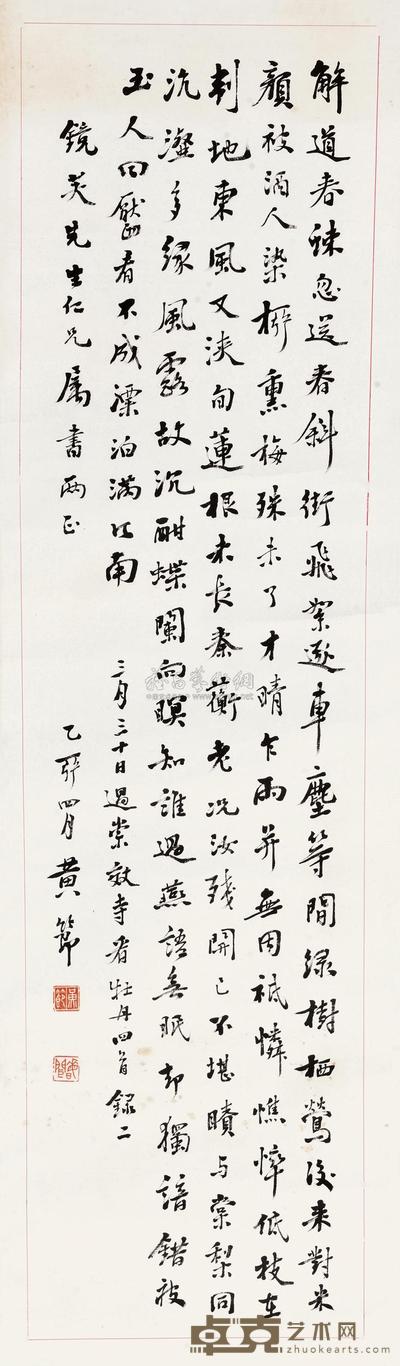 解道春歸忽送春斜街飛絮逐車塵等閒綠樹栖鶯後來對朱
顏被酒人染柳熏梅殊未了才晴乍雨并無因祇憐憔悴低枝在
刬地東風又浹旬蓮根未長秦蘅老況汝殘開已不堪曠與棠梨同
沆瀣多緣風露故沉酣蝶闌向暝知誰過燕語無眠却獨諳錯被
玉人回靨看不成漂泊滿江南
三月三十日過崇效寺看牡丹四首錄二
鏡芙先生仁兄屬書兩正
乙亥四月黃節
卓克艺术网
zhuokearts.com